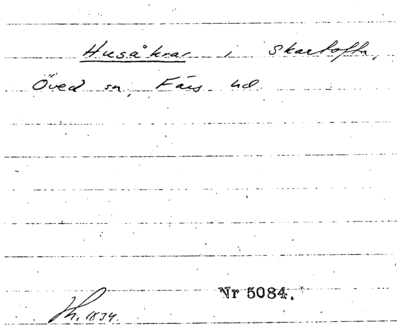 Husåkrar i Skartofta,
Öved sn, Färs hd
Nr 5084.
Th. 1834.